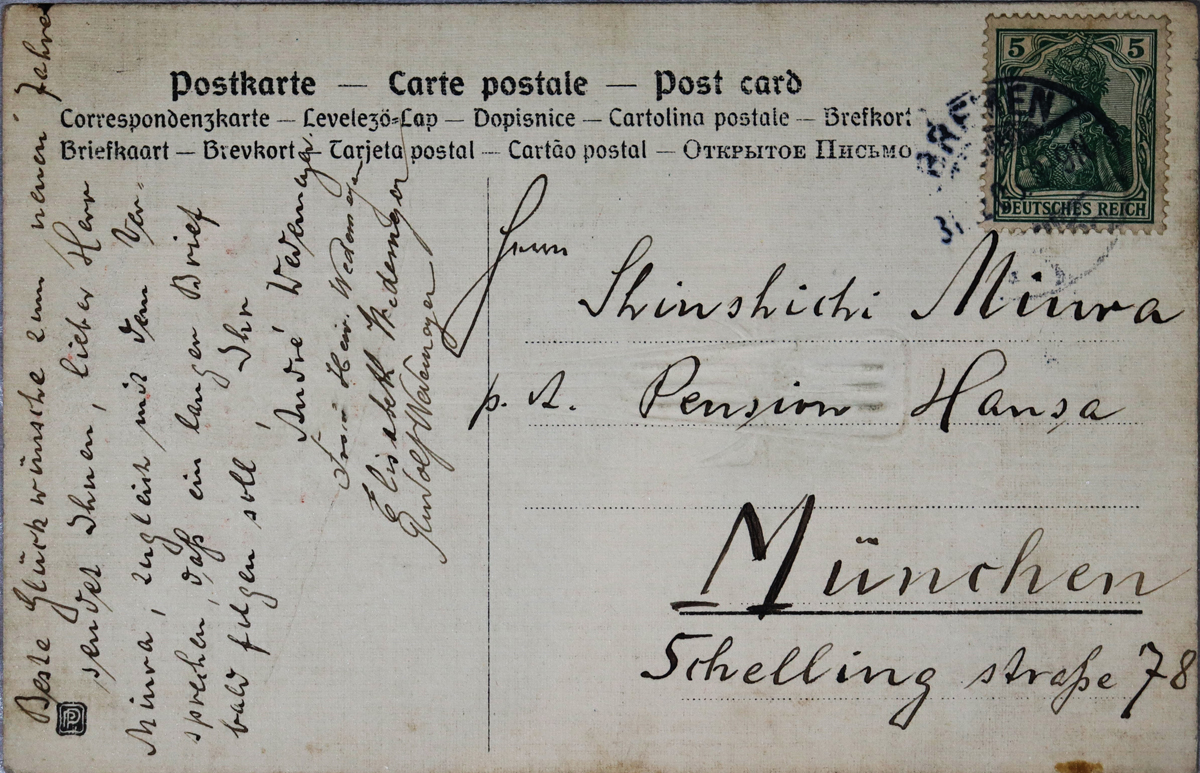 Postkarte — Carte postale — Post card
Correspondenzkarte — Levelezö-Lap — Dopisnice — Cartolina postale — Brefkort
Briefkaart — Brevkort — Tarjeta postal — Cartão postal — Открытое Письмо
5 5
DEUTSCHES REICH
BREMEN
Herrn
Shinshichi Miura
p. A. Pension Hansa
München
Schelling straße 78
Beste Glückwünsche zum neuen Jahre
sendet Ihnen, lieber Herr
Miura, zugleich mit dem Ver-
sprechen, daß ein langer Brief
bald folgen soll, Ihr
André Wedemeyer.
Frau Heinr. Wedemeyer
Elisabeth Wedemeyer
Rudolf Wedemeyer